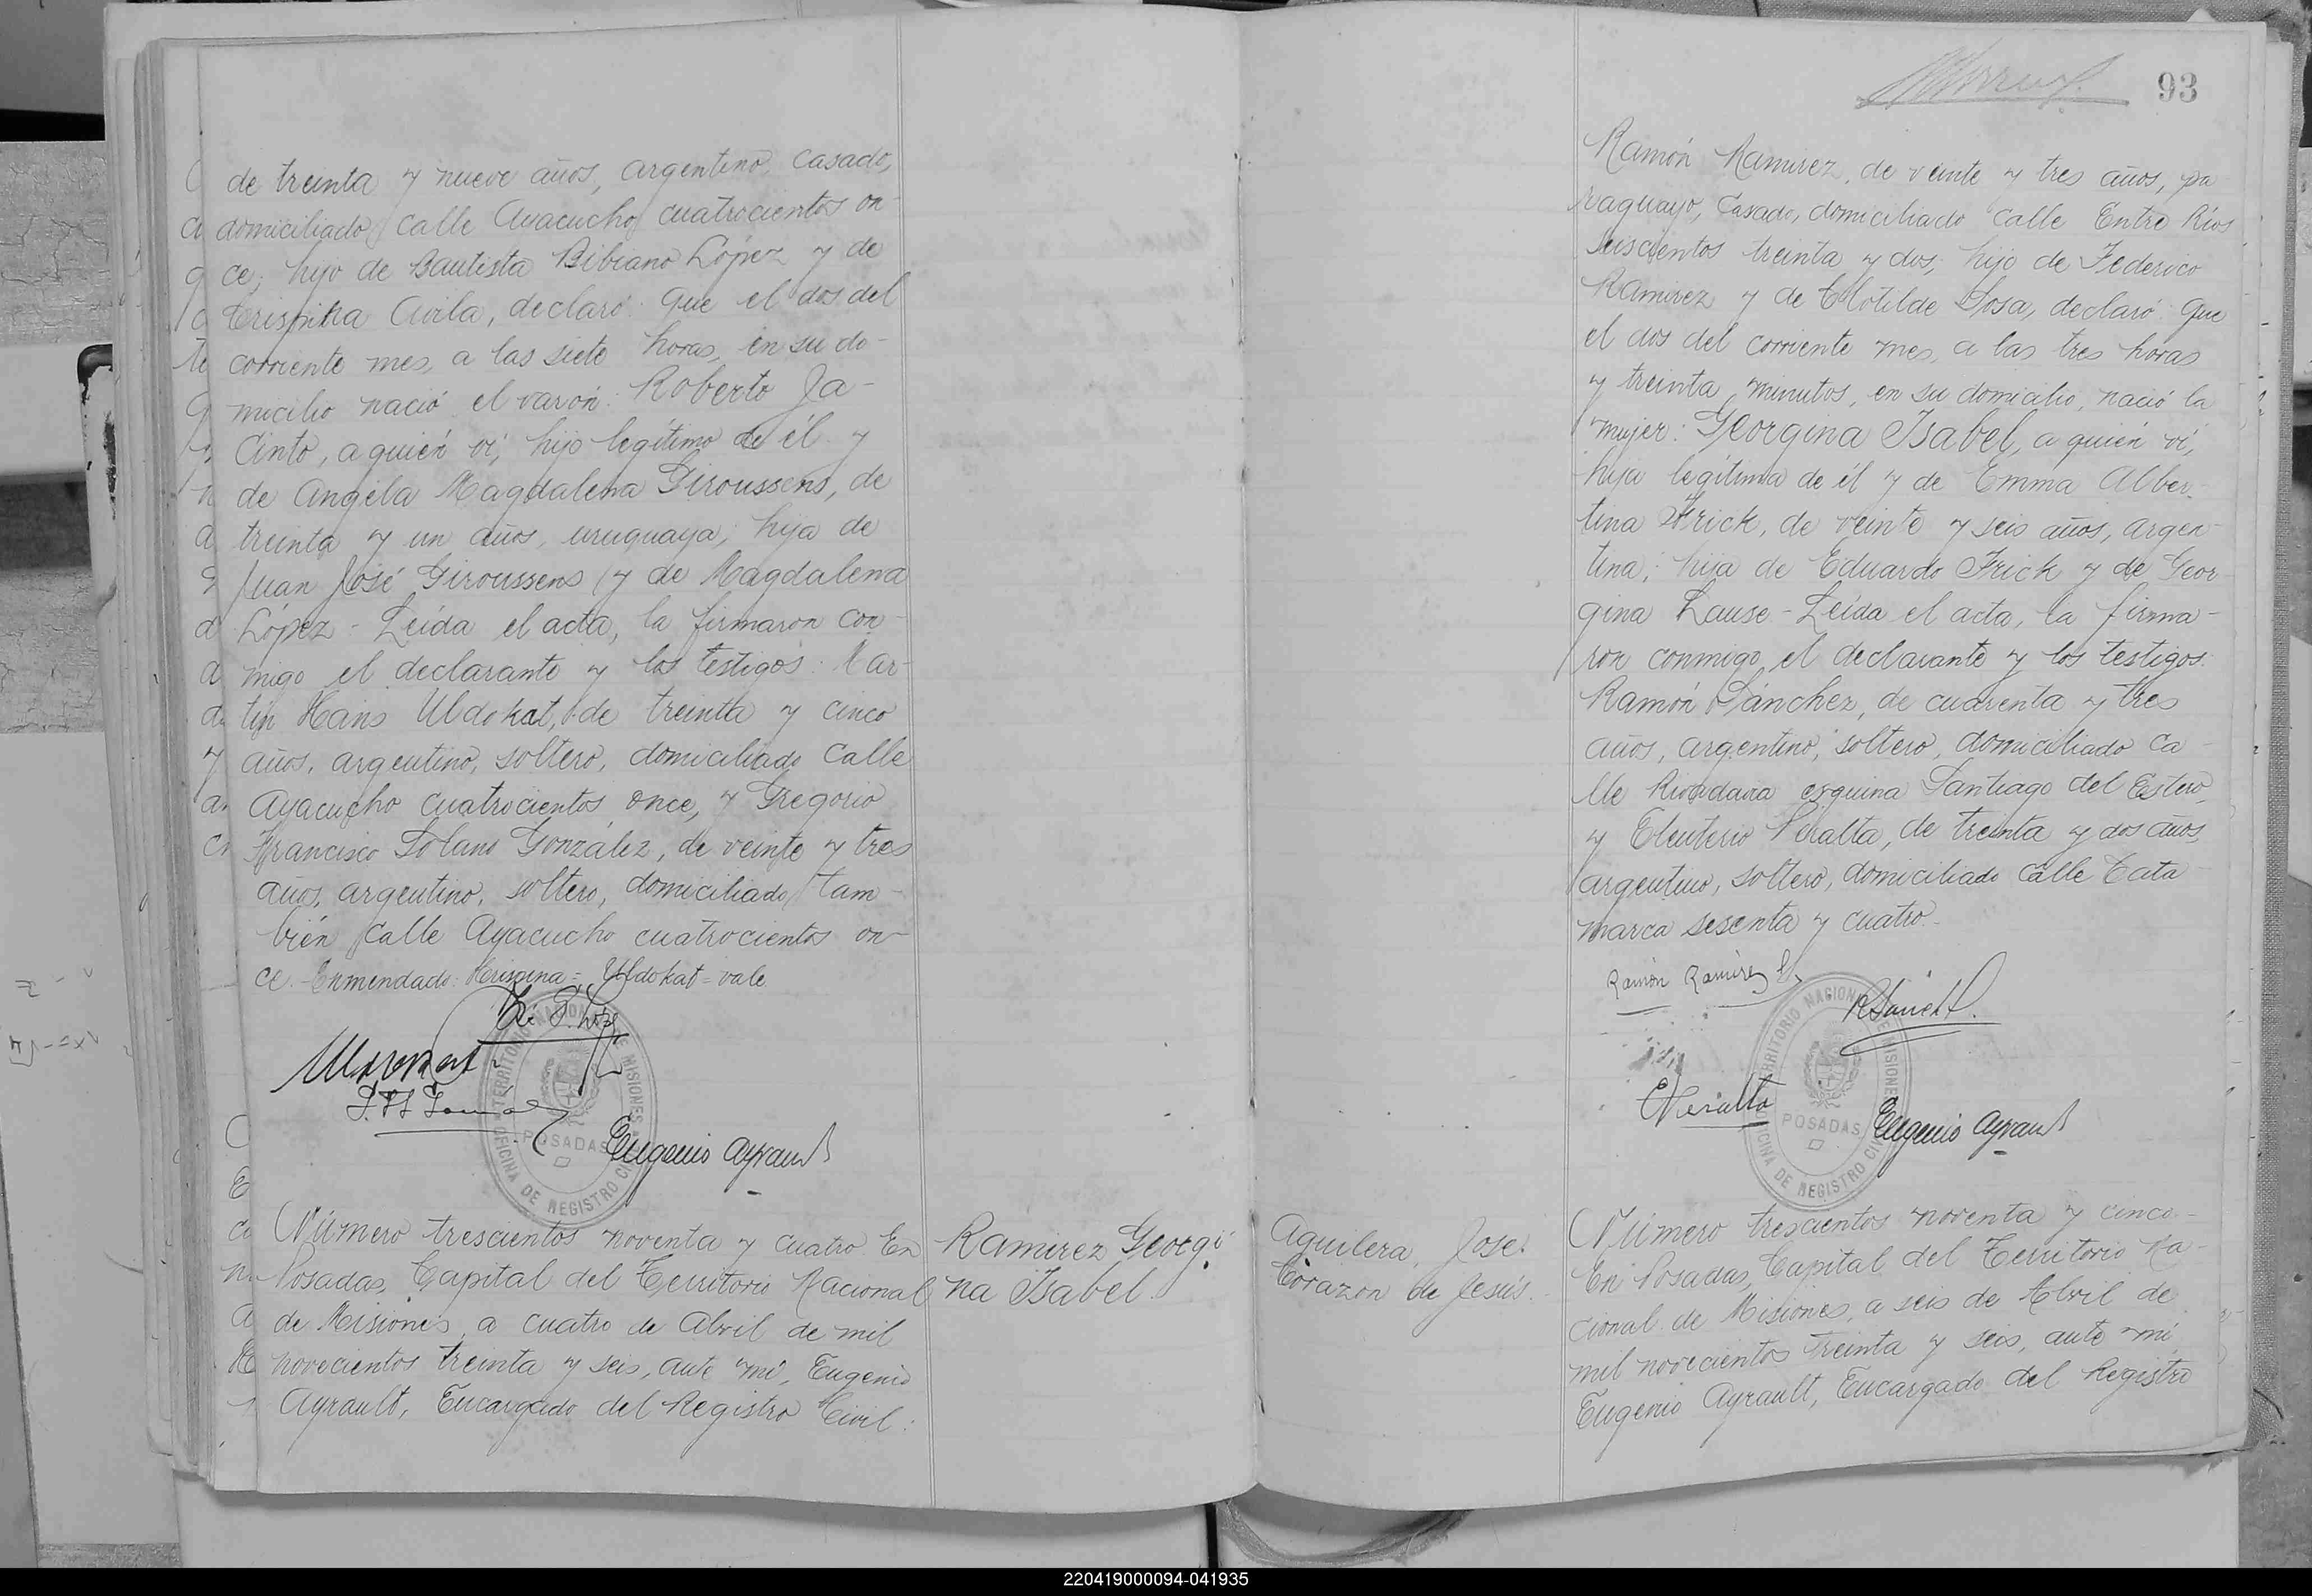 de treinta y nueve años, argentino, casado,
domiciliado calle Ayacucho cuatrocientos on-
ce; hijo de Bautista Bibiano López y de
Crispina Avila, declaró: Que el dos del
corriente mes, a las siete horas, en su do-
micilio nació el varón: Roberto Ja-
cinto, a quién ví, hijo legítimo de él y
de Angela Magdalena Giroussens, de
treinta y un años, uruguaya; hija de
Juan José Giroussens y de Magdalena
López - Leída el acta, la firmaron con-
migo el declarante y los testigos: Mar-
tin Hans Uldokat, de treinta y cinco
años, argentino, soltero, domiciliado calle
Ayacucho cuatrocientos once, y Gregorio
Francisco Solano González, de veinte y tres
años, argentino, soltero, domiciliado tam-
bién calle Ayacucho cuatrocientos on-
ce. - Enmendado: Crispina = Uldokat = vale
TERRITORIO NACIONAL DE MISIONES
POSADAS
OFICINA DE REGISTRO CIVIL
Eugenio Ayrault
Número trescientos noventa y cuatro En
Posadas, Capital del Territorio Nacional
de Misiones, a cuatro de Abril de mil
novecientos treinta y seis, ante mí, Eugenio
Ayrault, Encargado del Registro Civil:
Ramirez Georgi
na Isabel.
93
Ramón Ramirez, de veinte y tres años, pa
raguayo, casado, domiciliado calle Entre Ríos
seiscientos treinta y dos; hijo de Federico
Ramirez y de Clotilde Sosa, declaró: Que
el dos del corriente mes, a las tres horas
y treinta minutos, en su domicilio, nació la
mujer: Georgina Isabel, a quién ví,
hija legítima de él y de Emma Alber-
tina Frick, de veinte y seis años, argen-
tina; hija de Eduardo Frick y de Geor-
gina Lause - Leída el acta, la firma-
ron conmigo, el declarante y los testigos:
Ramón Sánchez, de cuarenta y tres
años, argentino, soltero, domiciliado ca-
lle Rivadavia esquina Santiago del Estero,
y Eleuterio Peralta, de treinta y dos años,
argentino, soltero, domiciliado calle Cata-
marca sesenta y cuatro. -
Ramón Ramírez
EPeralta
TERRITORIO NACIONAL DE MISIONES
POSADAS
OFICINA DE REGISTRO CIVIL
Eugenio Ayrault
Aguilera, José.
Corazon de Jesús.
Número trescientos noventa y cinco -
En Posadas, Capital del Territorio Na-
cional de Misiones, a seis de Abril de
mil novecientos treinta y seis, ante mí,
Eugenio Ayrault, Encargado del Registro
220419000094-041935